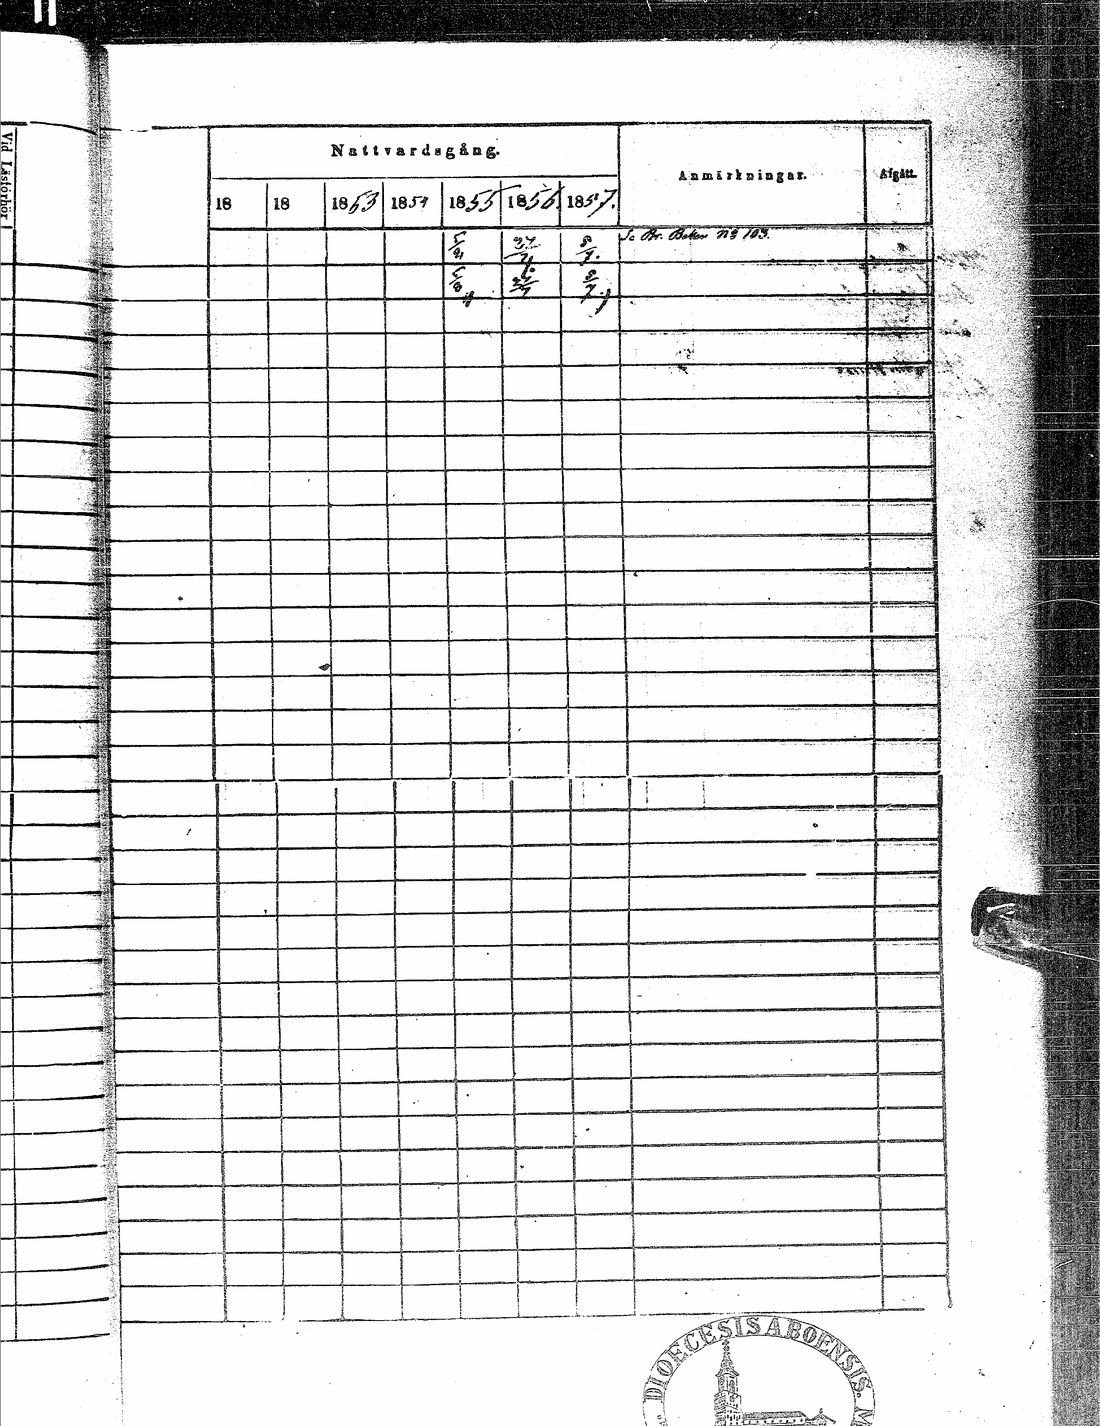 Vid Läsförhör
Nattvardsgång.
Anmärkningar.
Afgått.
18 18 1853 1854 1855 1856 1857.
5/8 27/7 5/7. Se Br. Boken No 103.
5/8 27/7 5/7.
DIOECESIS ABOENSIS. M